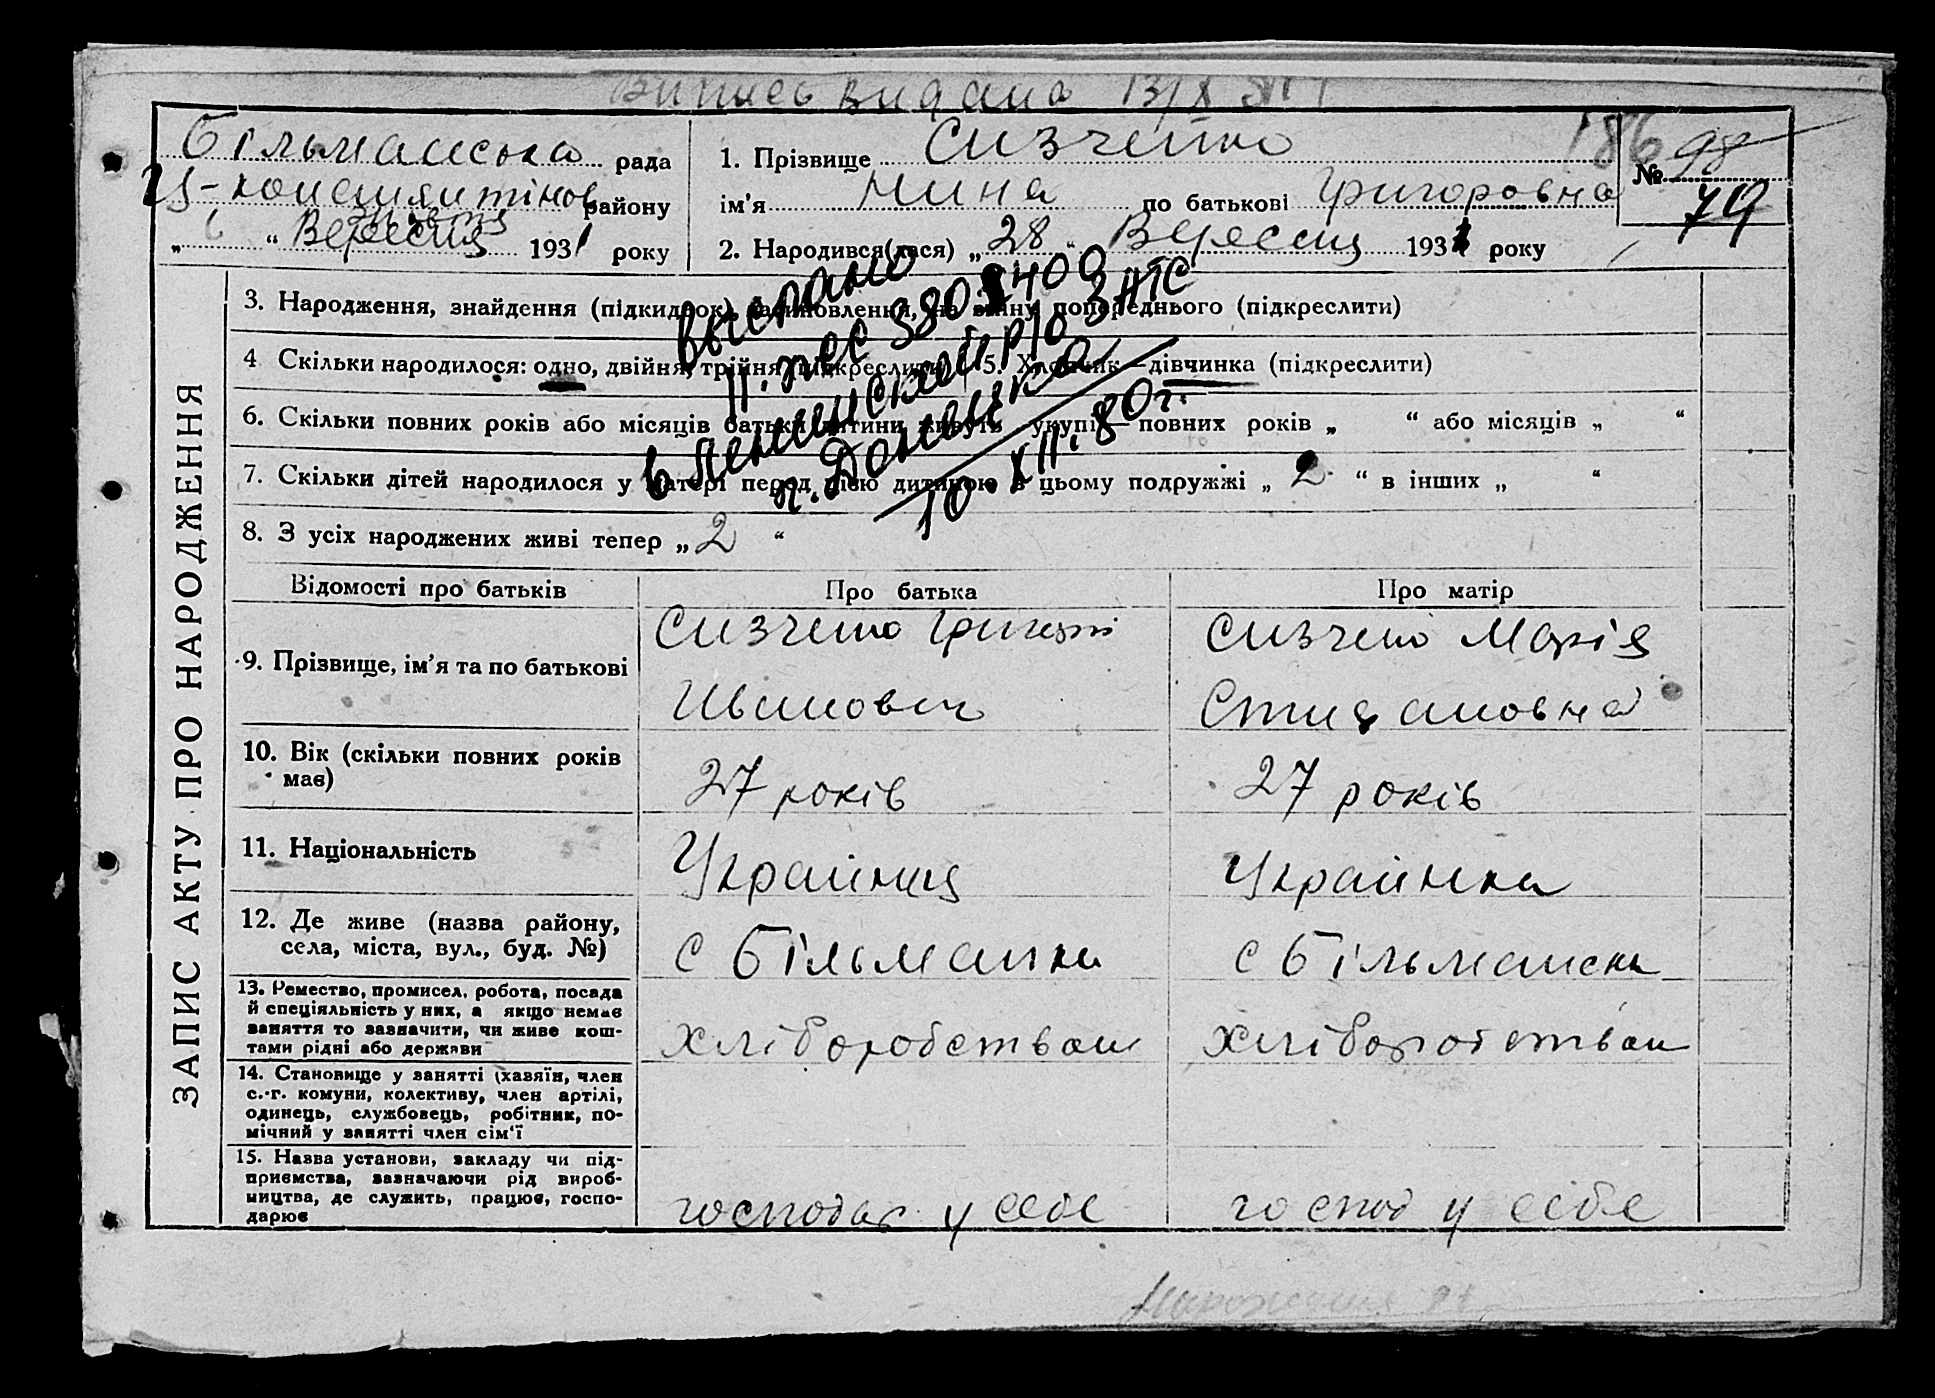 Випись видана 13/X
Більманська рада
Ц-констянтінов району
„6“ Вересня 1931 року
1. Прізвище Сизченко
ім’я Нина по батькові Григоровна
2. Народився(лася) „28“ Вересня 1931 року
186
№ 98
79
ЗАПИС АКТУ ПРО НАРОДЖЕННЯ
3. Народження, знайдення (підкидок), усиновлення, на зміну попереднього (підкреслити)
4 Скільки народилося: одно, двійня, трійня (підкреслити) 5. Хлопчик—дівчинка (підкреслити)
6. Скільки повних років або місяців батьки дитини живуть укупі— повних років „ “ або місяців „ “
7. Скільки дітей народилося у матері перед цією дитиною в цьому подружжі „ 2 “ в інших „ “
8. З усіх народжених живі тепер „ 2 “
выслано
в Ленинский р/о ЗАГС
г. Донецка
10.XII.80г.
Відомості про батьків Про батька Про матір
9. Прізвище, ім’я та по батькові
Сизченко Григорі Сизченко Марія
Иванович
10. Вік (скільки повних років має)
27 років 27 років
11. Національність
Украинец Украинка
12. Де живе (назва району, села, міста, вул., буд. №)
с Більманка с Більманска
13. Ремество, промисел, робота, посада
й спеціяльність у них, а якщо немає
заняття то зазначити, чи живе кош-
тами рідні або держави
хліборобством хліборобством
14. Становище у занятті (хазяїн, член
с.-г. комуни, колективу, член артілі,
одинець, службовець, робітник, по-
мічний у занятті член сім’ї
15. Назва установи, закладу чи під-
приємства, зазначаючи рід вироб-
ництва, де служить, працює, госпо-
дарює
господар у себе господ у себе